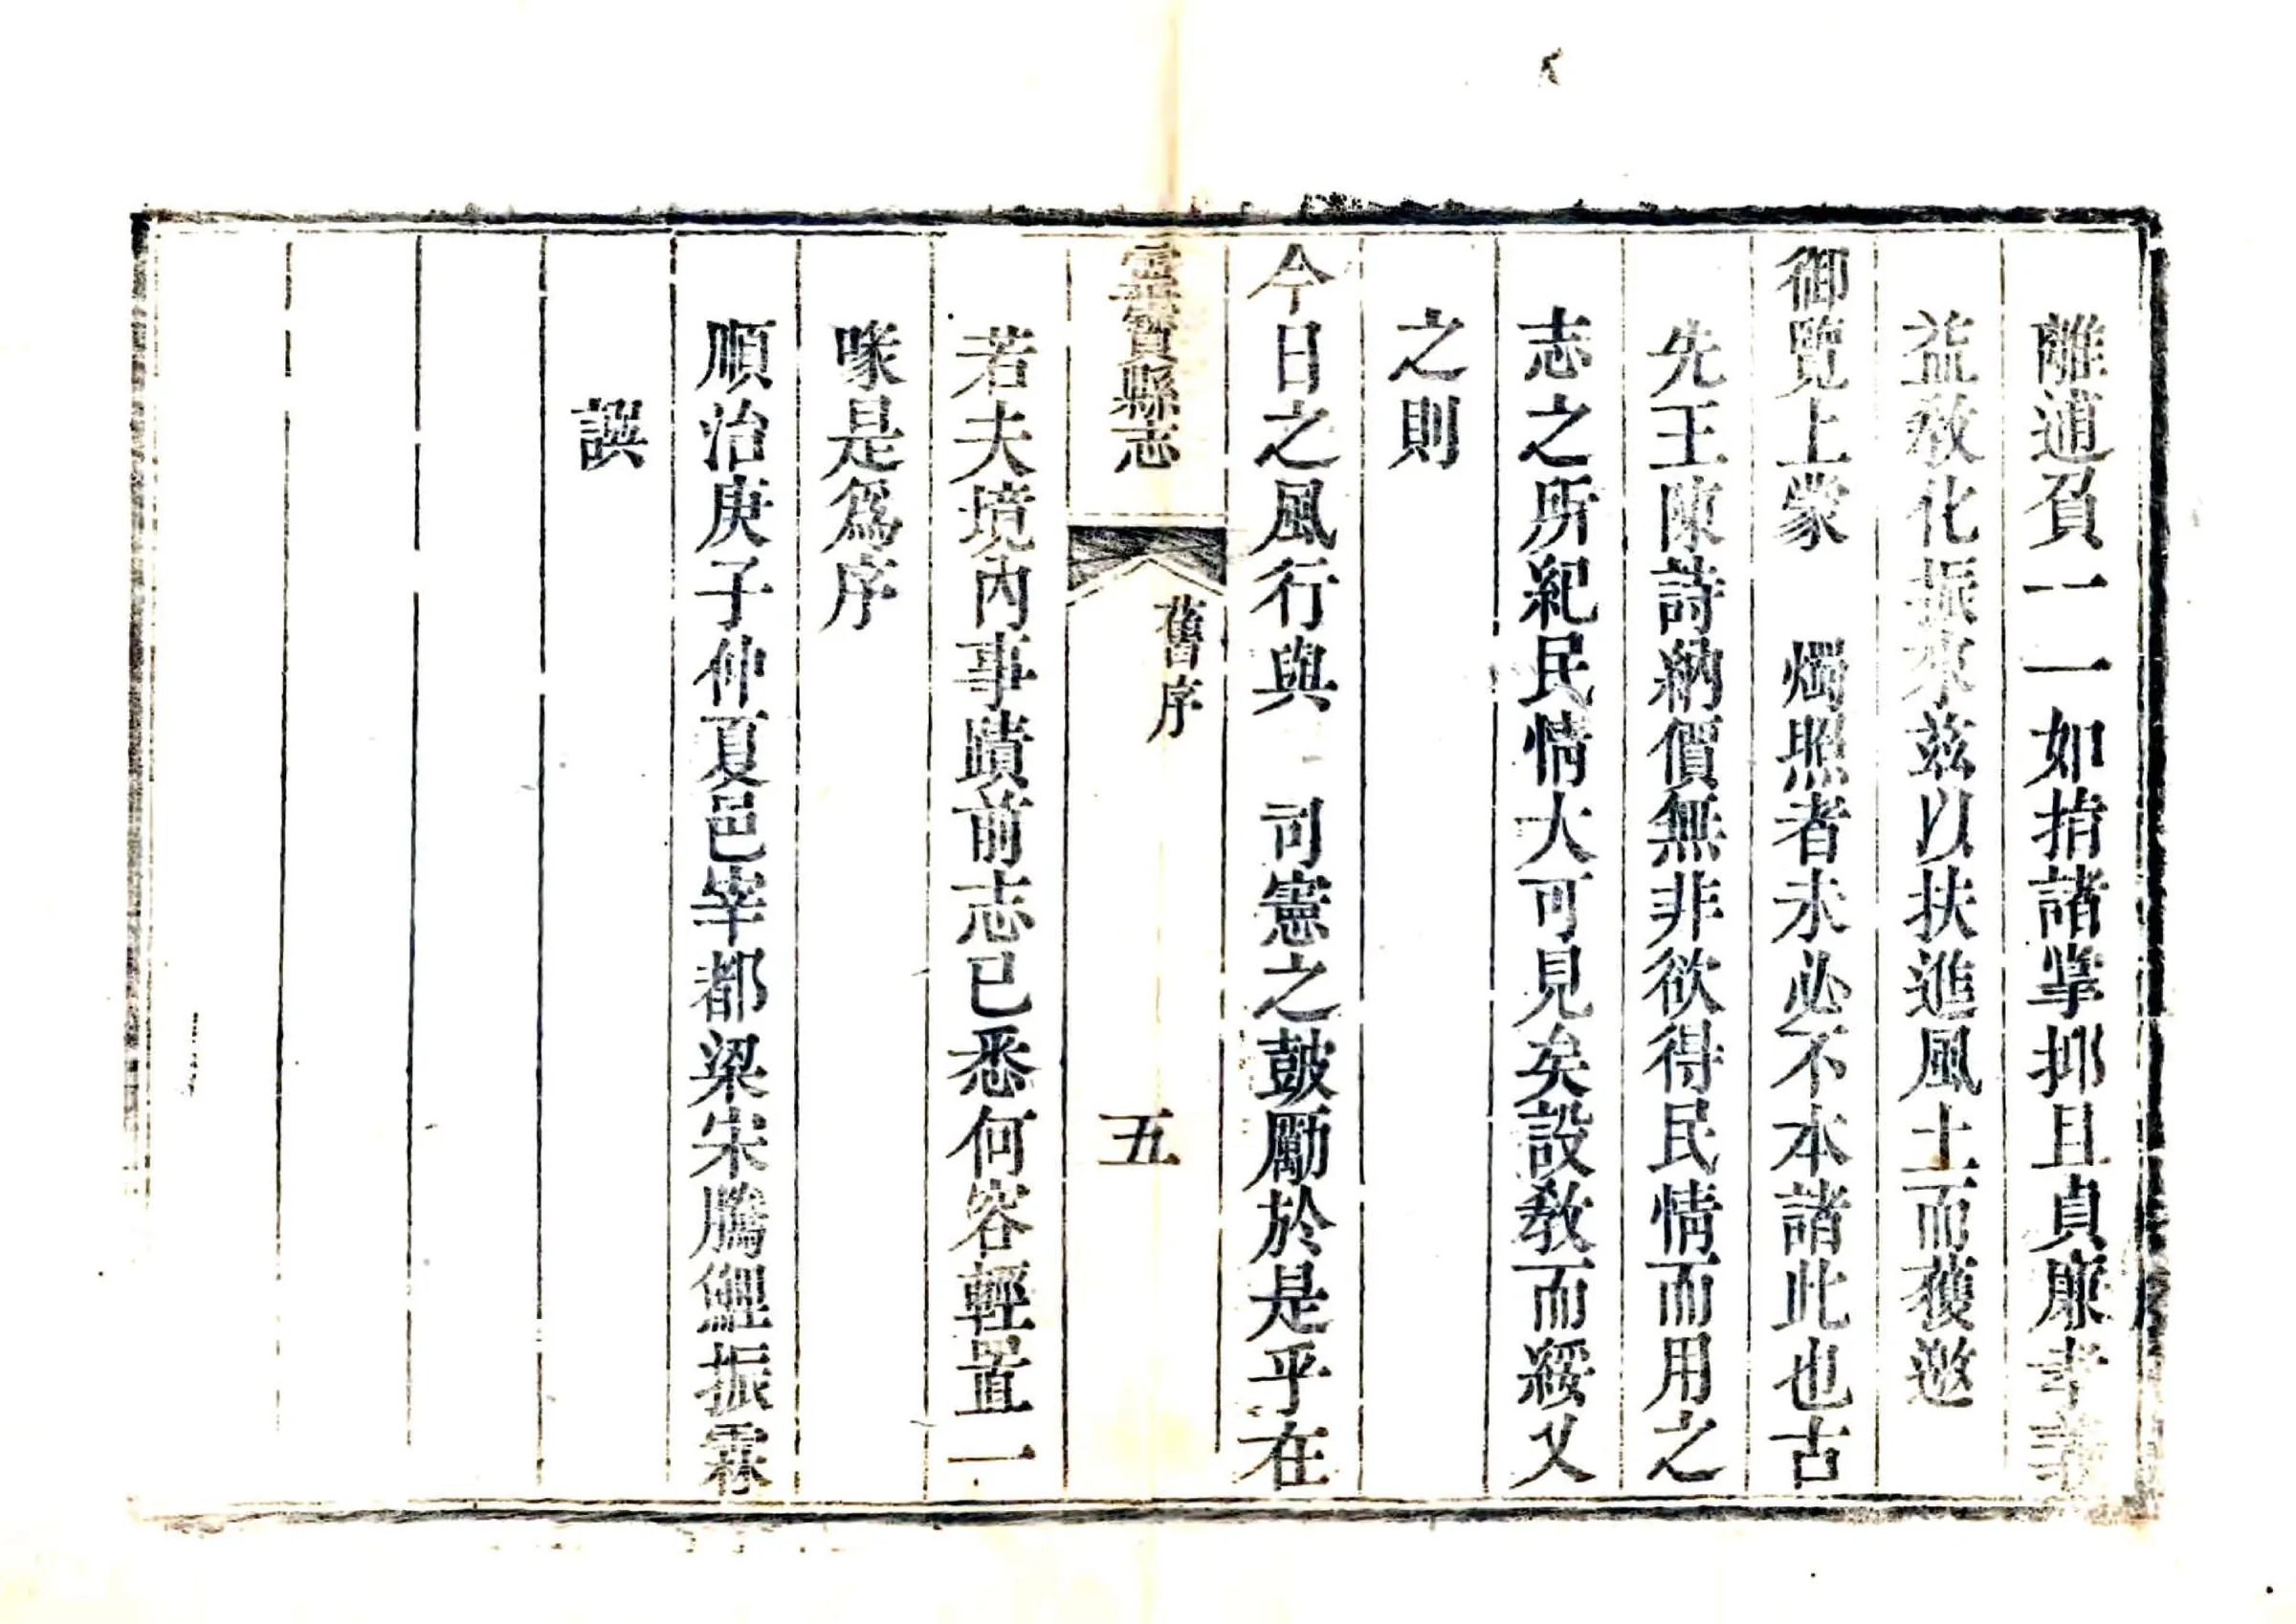 離逋負一一如指諸掌抑且貞廉孝義
益敎化振來茲以扶進風土而獲邀
御覽上蒙　燭照者未必不本諸此也古
先王陳詩納價無非欲得民情而用之
志之所紀民情大可見矣設敎而綏乂
之則
今日之風行與　司憲之鼓勵於是乎在
靈寶縣志
舊序
五
若夫境內事蹟前志已悉何容輕置一
喙是爲序
順治庚子仲夏邑宰都梁宋騰鯉振霖
譔